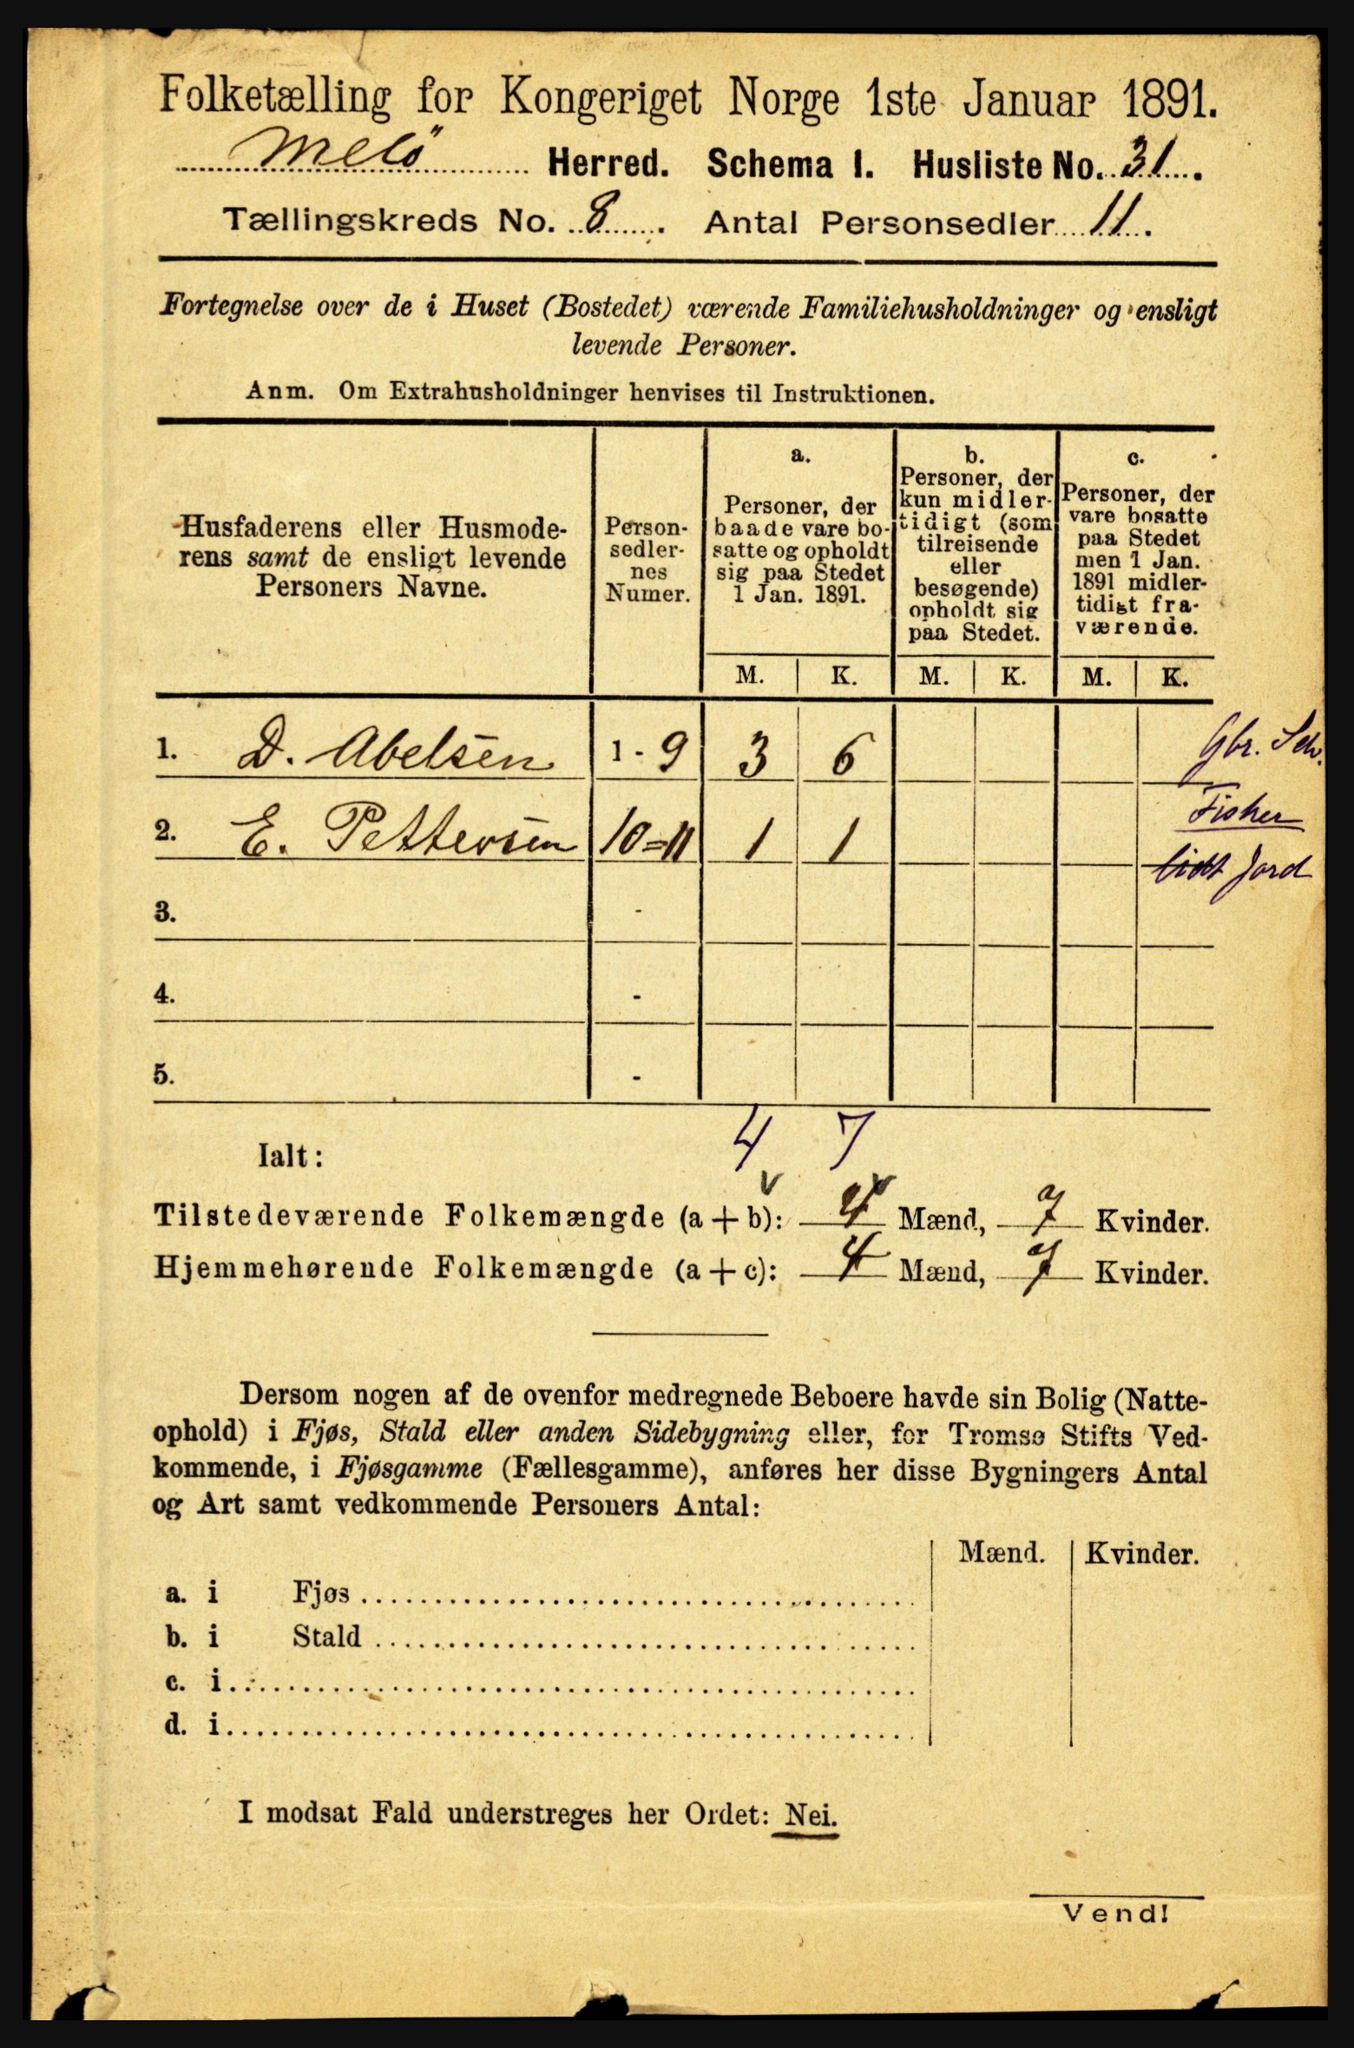 Folketælling for Kongeriget Norge 1ste Januar 1891.
Melö Herred. Schema I. Husliste No. 31.
Tællingskreds No. 8. Antal Personsedler 11.
Fortegnelse over de i Huset (Bostedet) værende Familiehusholdninger og ensligt
levende Personer.
Anm. Om Extrahusholdninger henvises til Instruktionen.
Husfaderens eller Husmode-
rens samt de ensligt levende
Personers Navne.
Person-
sedler-
nes
Numer.
a.
Personer, der
baade vare bo-
satte og opholdt
sig paa Stedet
1 Jan. 1891.
b.
Personer, der
kun midler-
tidigt (som
tilreisende
eller
besøgende)
opholdt sig
paa Stedet.
c.
Personer, der
vare bosatte
paa Stedet
men 1 Jan.
1891 midler-
tidigt fra-
værende.
M. K. M. K. M. K.
1. D. Abelsen 1 - 9 3 6 Gbr. Selv.
2. E. Pettersen 10=11 1 1 Fisker
lidt Jord
3. -
4. -
5. -
4 7
Ialt:
Tilstedeværende Folkemængde (a + b): 4 Mænd, 7 Kvinder.
Hjemmehørende Folkemængde (a + c): 4 Mænd, 7 Kvinder.
Dersom nogen af de ovenfor medregnede Beboere havde sin Bolig (Natte-
ophold) i Fjøs, Stald eller anden Sidebygning eller, for Tromsø Stifts Ved-
kommende, i Fjøsgamme (Fællesgamme), anføres her disse Bygningers Antal
og Art samt vedkommende Personers Antal:
Mænd. Kvinder.
a. i Fjøs
b. i Stald
c. i
d. i
I modsat Fald understreges her Ordet: Nei.
Vend!